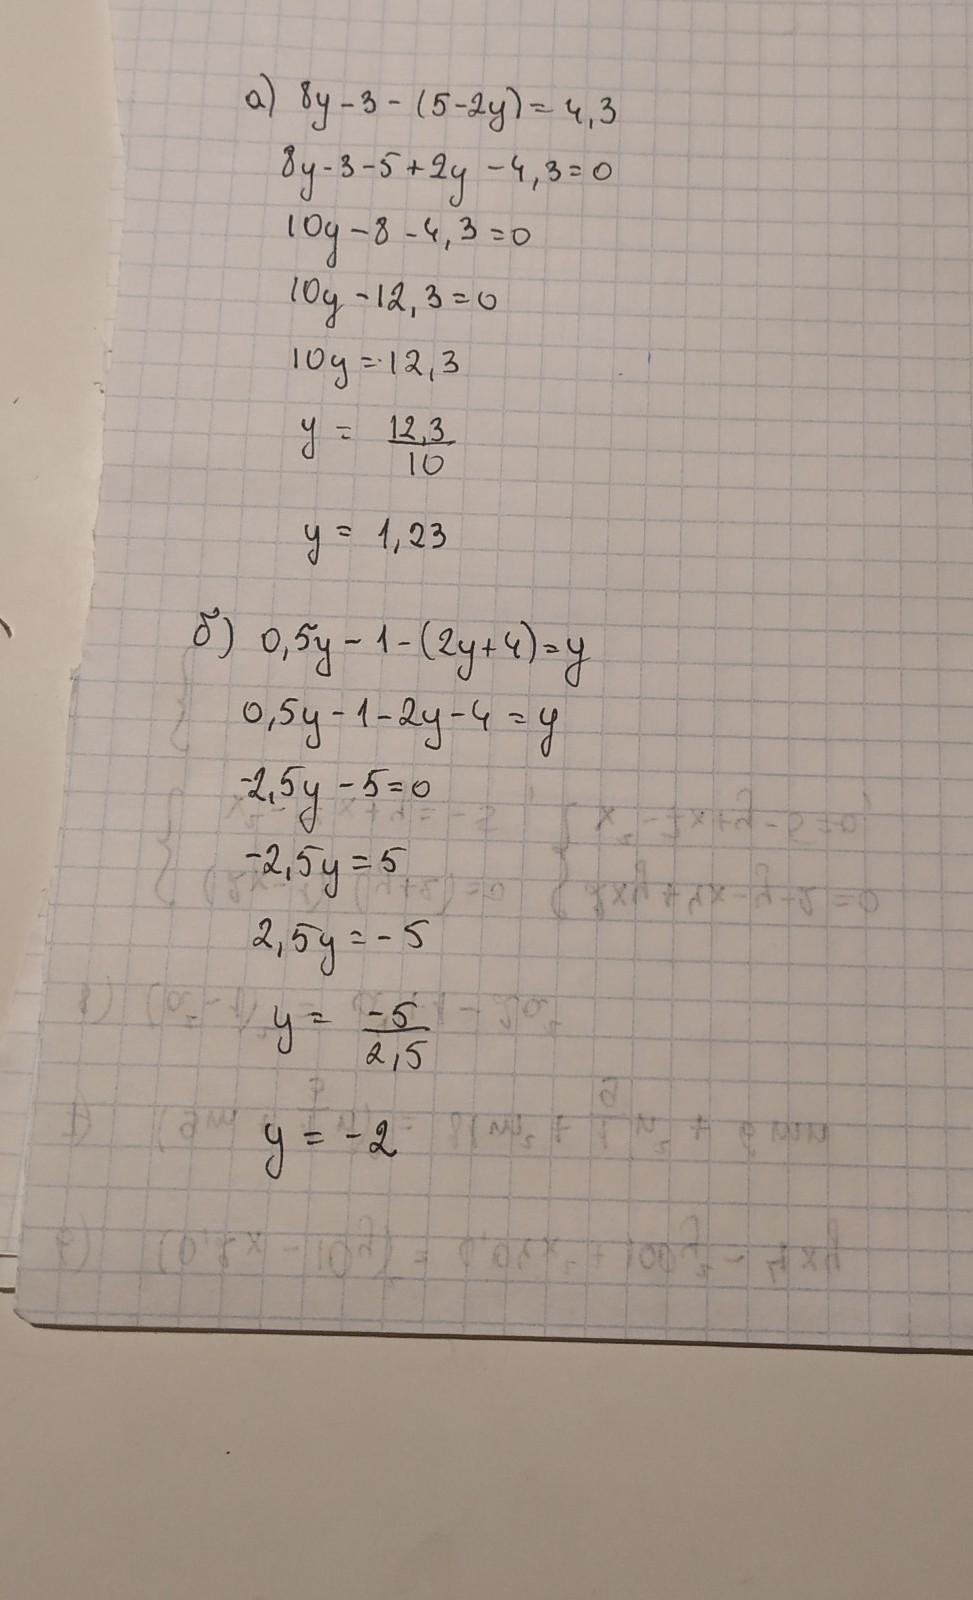 а) 8y - 3 - (5 - 2y) = 4,3
8y - 3 - 5 + 2y - 4,3 = 0
10y - 8 - 4,3 = 0
10y - 12,3 = 0
10y = 12,3
y = 12,3/10
y = 1,23
б) 0,5y - 1 - (2y + 4) = y
0,5y - 1 - 2y - 4 = y
-2,5y - 5 = 0
-2,5y = 5
2,5y = -5
y = -5/2,5
y = -2